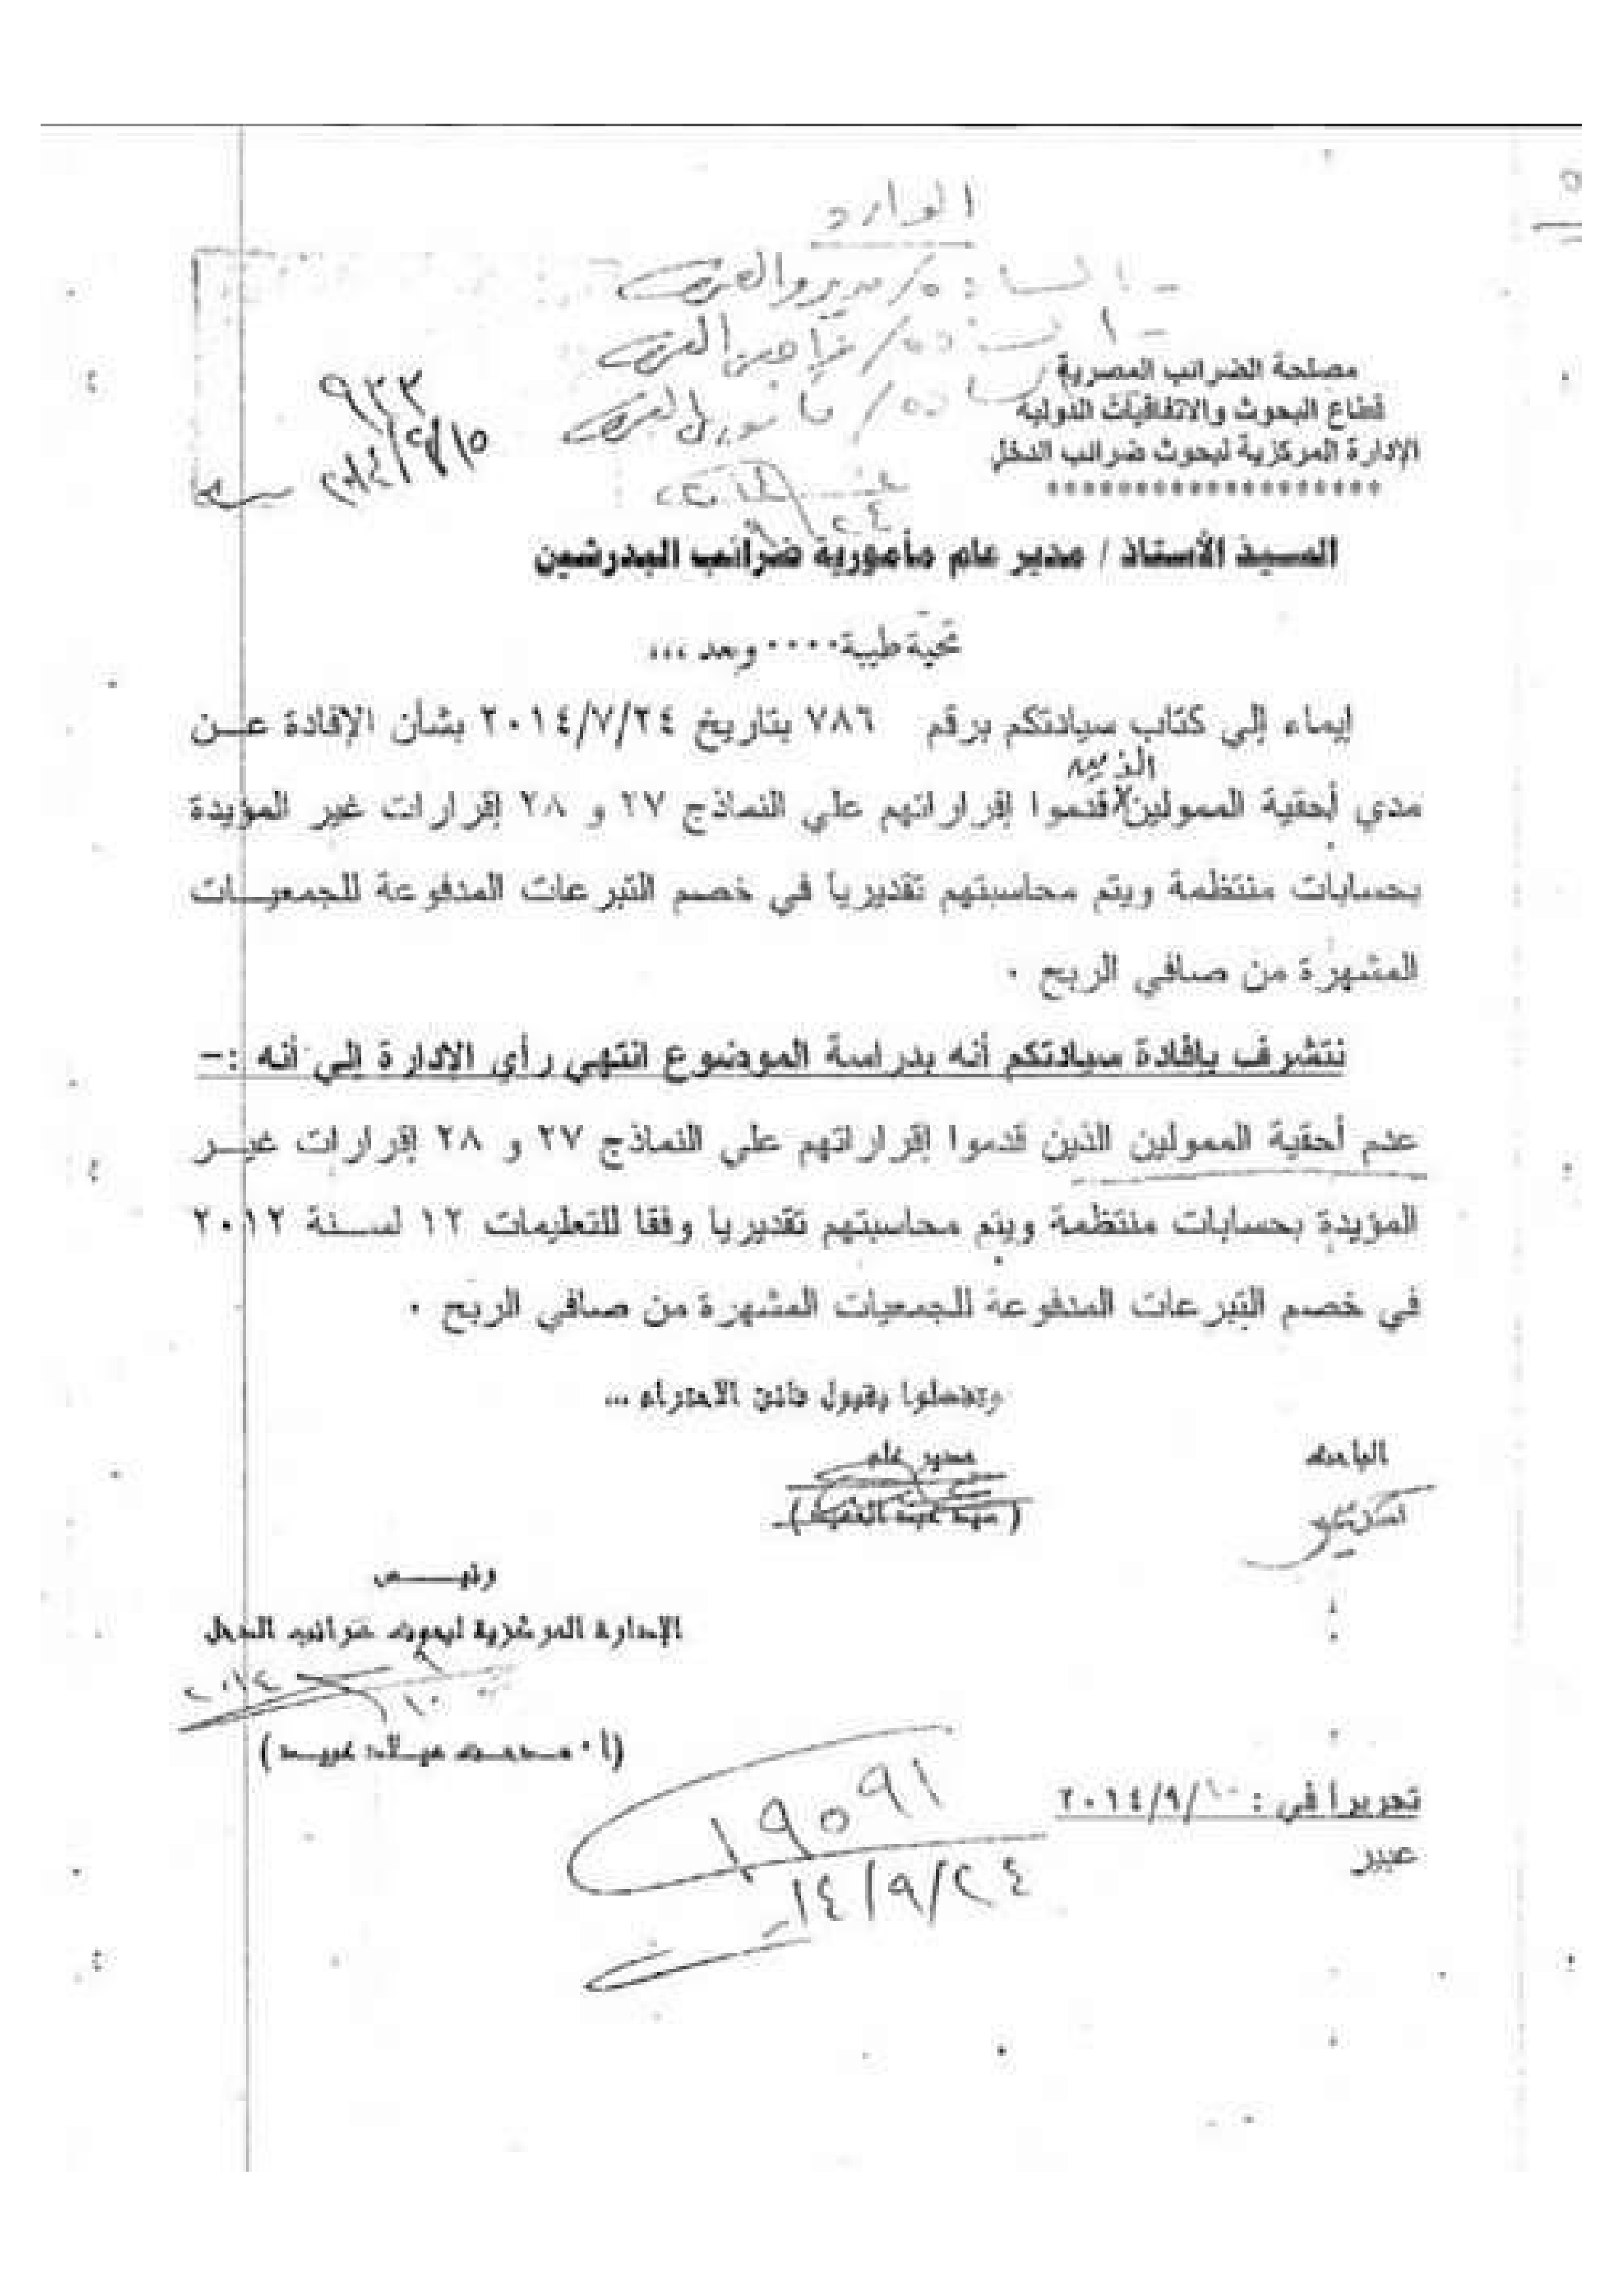 الوارد
مصلحة الضرائب المصرية
قطاع البحوث والاتفاقيات الدولية
الإدارة المركزية لبحوث ضرائب الدخل
******************
٩٣٣
السيد الأستاذ / مدير عام مأمورية ضرائب البدرشين
تحية طيبة .... وبعد ,,,
إيماء إلي كتاب سيادتكم برقم ٧٨٦ بتاريخ ٢٠١٤/٧/٢٤ بشأن الإفادة عن
مدي أحقية الممولين الذين قدموا إقراراتهم علي النماذج ٢٧ و ٢٨ إقرارات غير المؤيدة
بحسابات منتظمة ويتم محاسبتهم تقديرياً في خصم التبرعات المدفوعة للجمعيات
المشهرة من صافي الربح .
نتشرف بإفادة سيادتكم أنه بدراسة الموضوع انتهي رأي الإدارة إلي أنه :-
عدم أحقية الممولين الذين قدموا إقراراتهم علي النماذج ٢٧ و ٢٨ إقرارات غير
المؤيدة بحسابات منتظمة ويتم محاسبتهم تقديريا وفقا للتعليمات ١٢ لسنة ٢٠١٢
في خصم التبرعات المدفوعة للجمعيات المشهرة من صافي الربح .
وتفضلوا بقبول فائق الاحترام ...
الباحث
مدير عام
رئيس
الإدارة المركزية لبحوث ضرائب الدخل
٢٠١٤
تحريراً في : ١٠/٩/٢٠١٤
عبير
١٩٥٩١
١٤/٩/٢٤